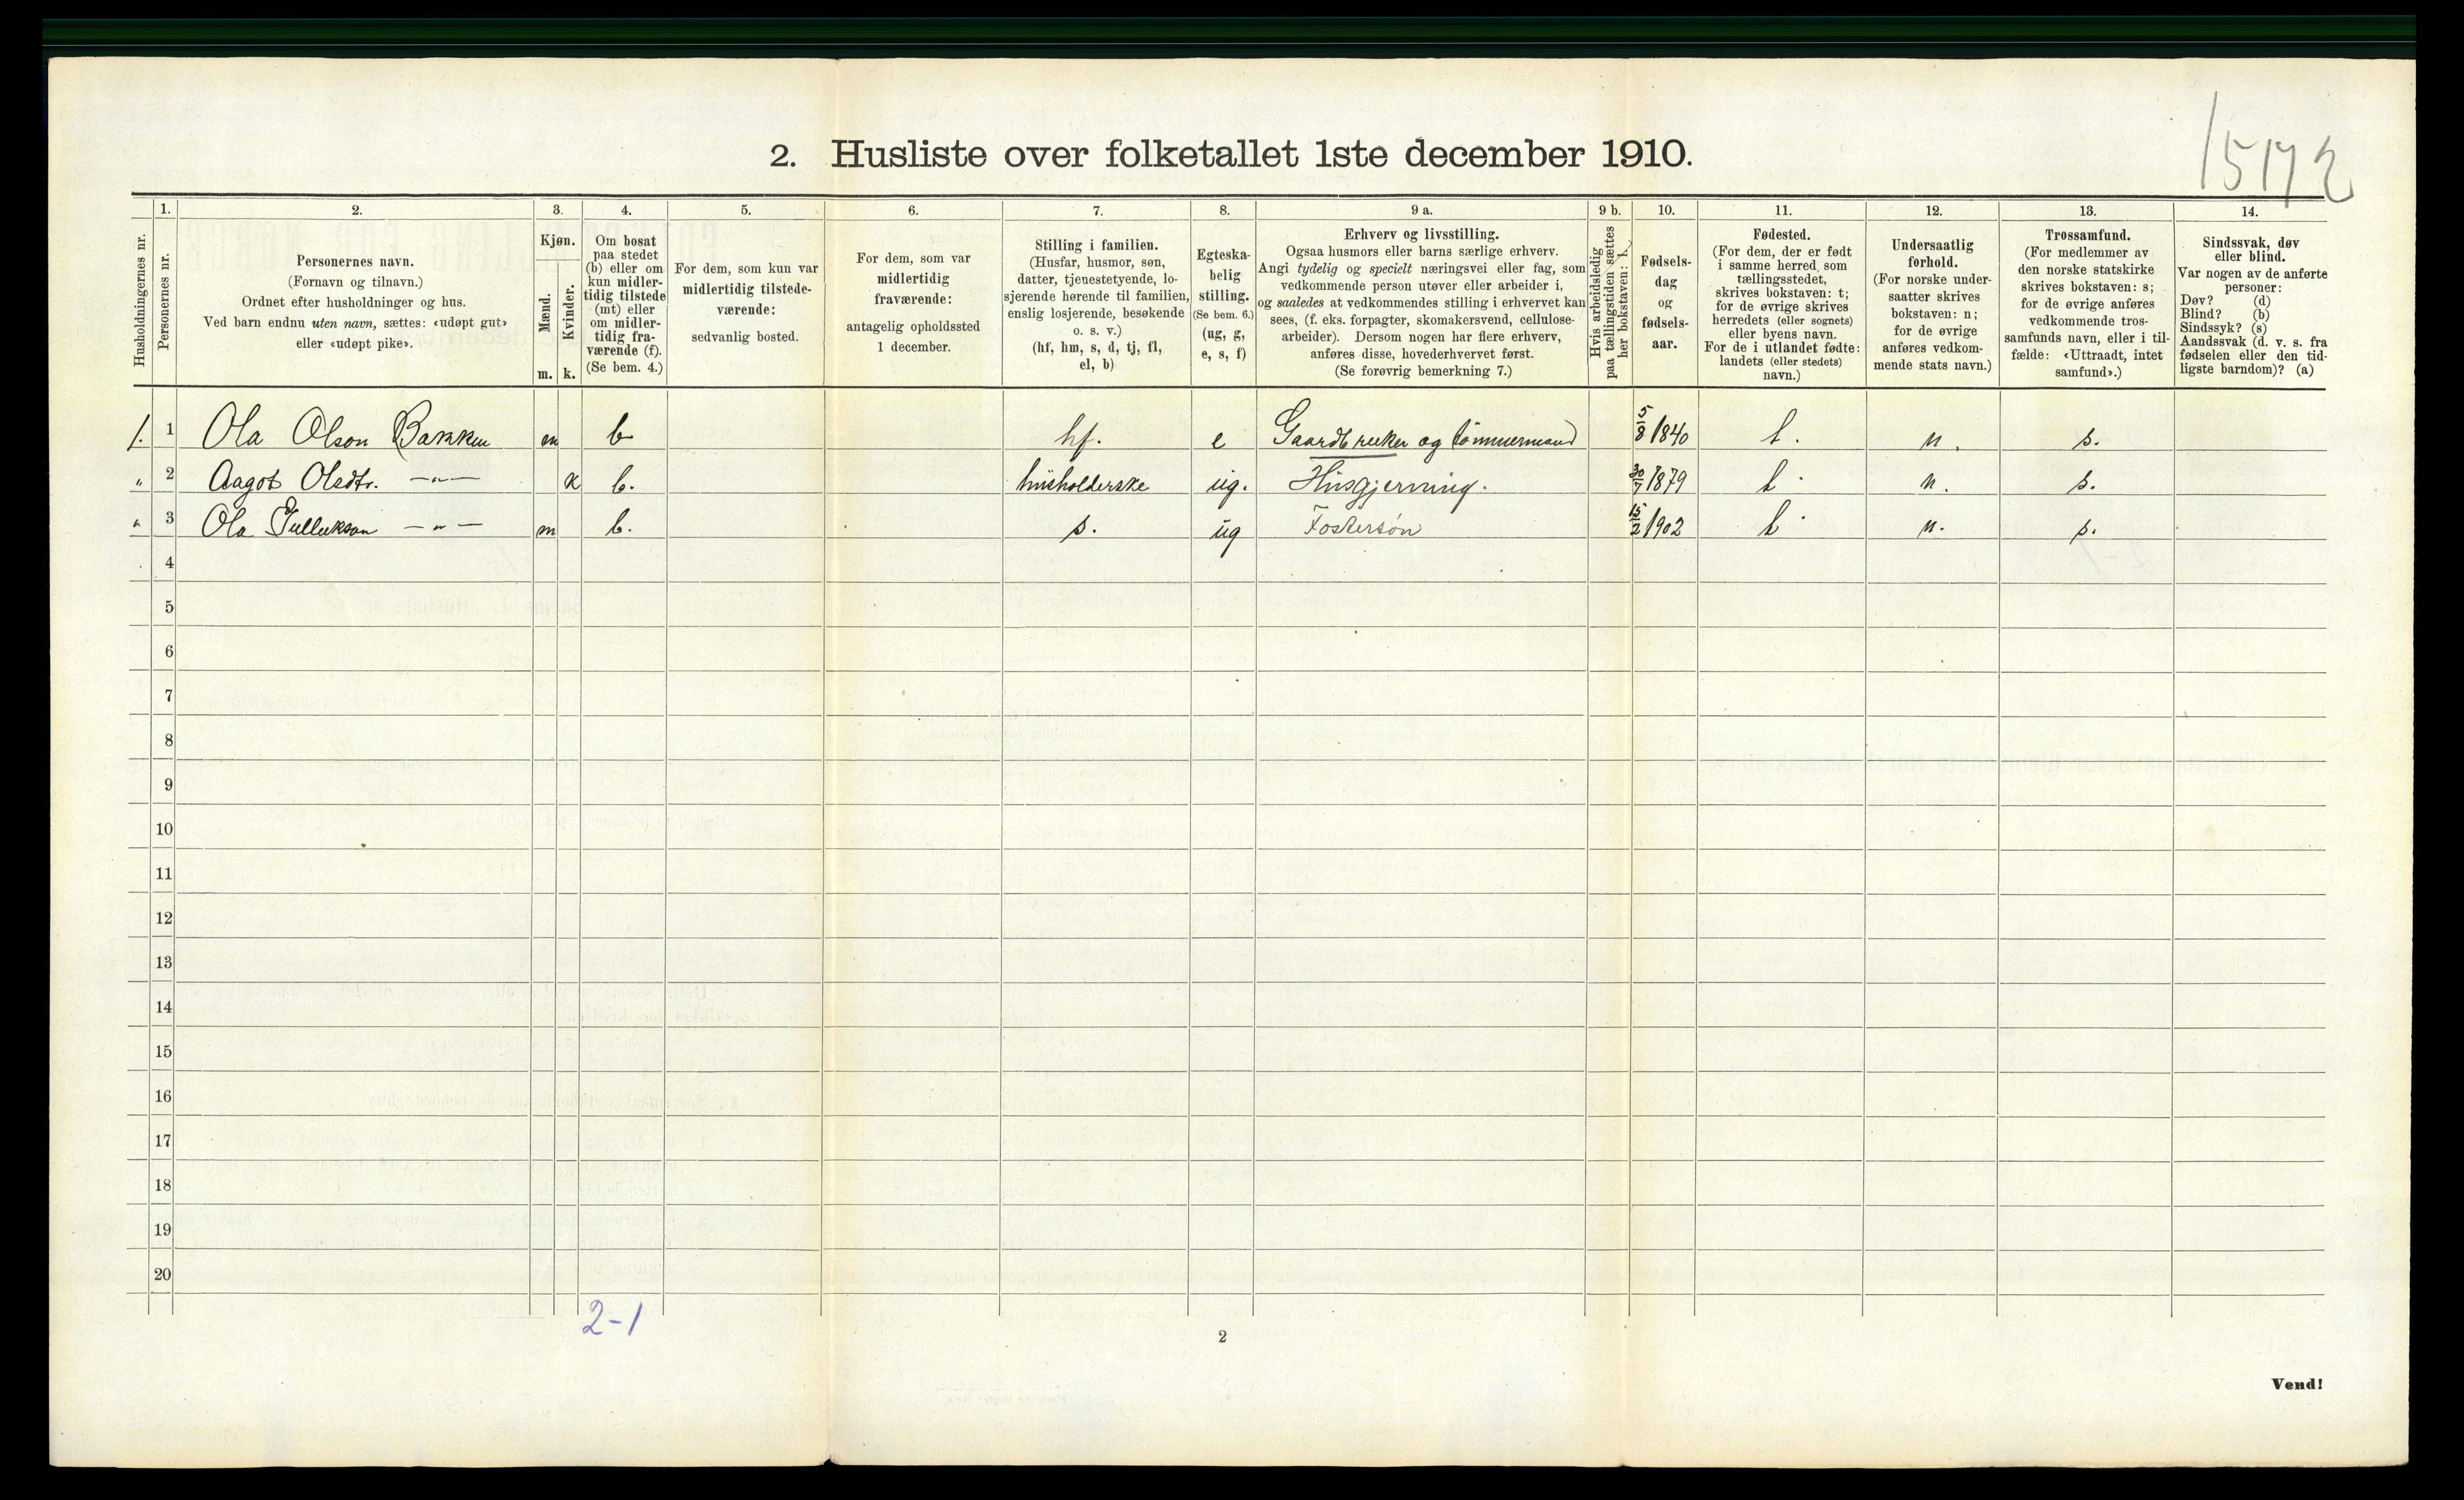 15172
2. Husliste over folketallet 1ste december 1910.
Husholdningernes nr.
1.
Personernes nr.
2.
Personernes navn.
(Fornavn og tilnavn.)
Ordnet efter husholdninger og hus.
Ved barn endnu uten navn, sættes: «udøpt gut»
eller «udøpt pike».
3.
Kjøn.
Mænd.
Kvinder.
m. k.
4.
Om bosat
paa stedet
(b) eller om
kun midler-
tidig tilstede
(mt) eller
om midler-
tidig fra-
værende (f).
(Se bem. 4.)
5.
For dem, som kun var
midlertidig tilstede-
værende:
sedvanlig bosted.
6.
For dem, som var
midlertidig
fraværende:
antagelig opholdssted
1 december.
7.
Stilling i familien.
(Husfar, husmor, søn,
datter, tjenestetyende, lo-
sjerende hørende til familien,
enslig losjerende, besøkende
o. s. v.)
(hf, hm, s, d, tj, fl,
el, b)
8.
Egteska-
belig
stilling.
(Se bem. 6.)
(ug, g,
e, s, f)
9 a.
Erhverv og livsstilling.
Ogsaa husmors eller barns særlige erhverv.
Angi tydelig og specielt næringsvei eller fag, som
vedkommende person utøver eller arbeider i,
og saaledes at vedkommendes stilling i erhvervet kan
sees, (f. eks. forpagter, skomakersvend, cellulose-
arbeider). Dersom nogen har flere erhverv,
anføres disse, hovederhvervet først.
(Se forøvrig bemerkning 7.)
9 b.
Hvis arbeidsledig
paa tællingstiden sættes
her bokstaven: l.
10.
Fødsels-
dag
og
fødsels-
aar.
11.
Fødested.
(For dem, der er født
i samme herred som
tællingsstedet,
skrives bokstaven: t;
for de øvrige skrives
herredets (eller sognets)
eller byens navn.
For de i utlandet fødte:
landets (eller stedets)
navn.)
12.
Undersaatlig
forhold.
(For norske under-
saatter skrives
bokstaven: n;
for de øvrige
anføres vedkom-
mende stats navn.)
13.
Trossamfund.
(For medlemmer av
den norske statskirke
skrives bokstaven: s;
for de øvrige anføres
vedkommende tros-
samfunds navn, eller i til-
fælde: «Uttraadt, intet
samfund».)
14.
Sindssvak, døv
eller blind.
Var nogen av de anførte
personer:
Døv? (d)
Blind? (b)
Sindssyk? (s)
Aandssvak (d. v. s. fra
fødselen eller den tid-
ligste barndom)? (a)
1. 1 Ola Olson Bakken m b hf. e Gaardbruker og tømmermand 5/8 1840 t. n. s.
" 2 Aagot Olsdtr. —"— k b. husholderske ug. Husgjerning. 30/7 1879 t. n. s.
" 3 Ola Gulleikson —"— m b. s. ug Fostersøn 15/2 1902 t. n. s.
4
5
6
7
8
9
10
11
12
13
14
15
16
17
18
19
20
2-1
2
Vend!